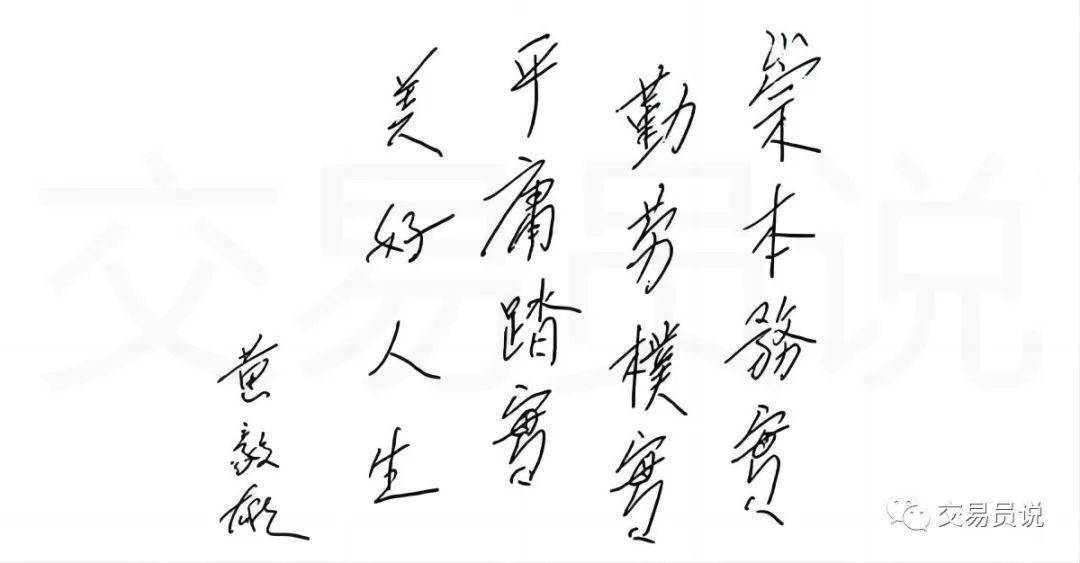 崇本務實
勤劳樸實
平庸踏實
美好人生
黄毅雄
交易员说
交易员说